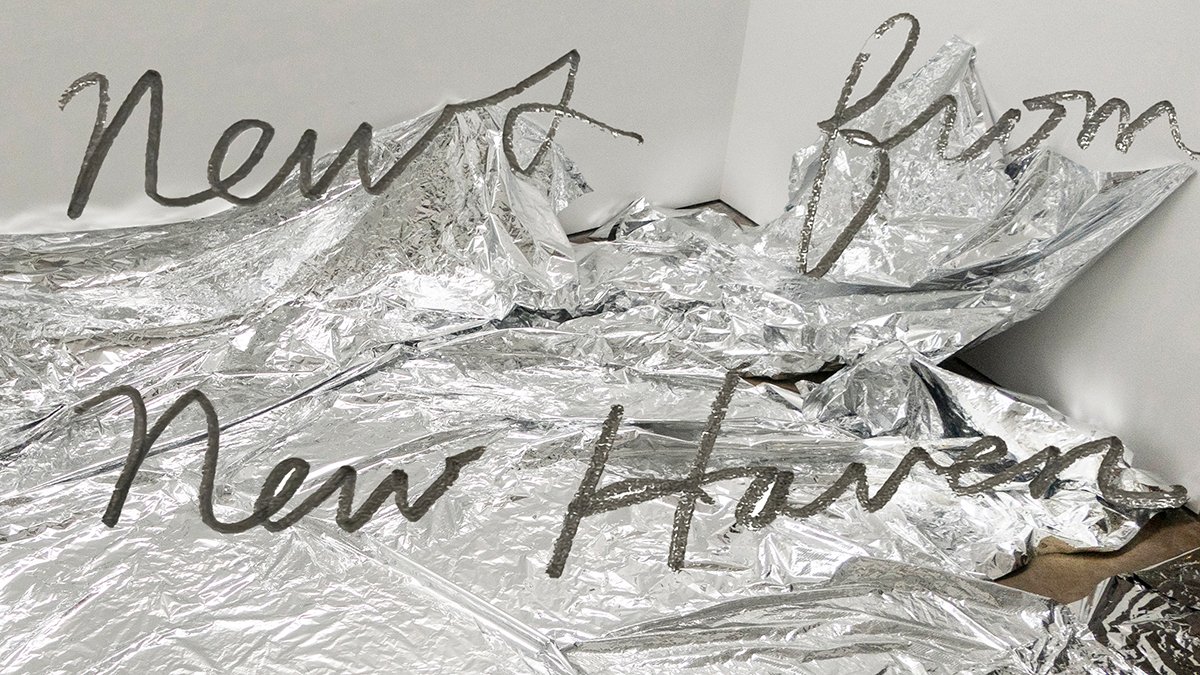 News from
New Haven